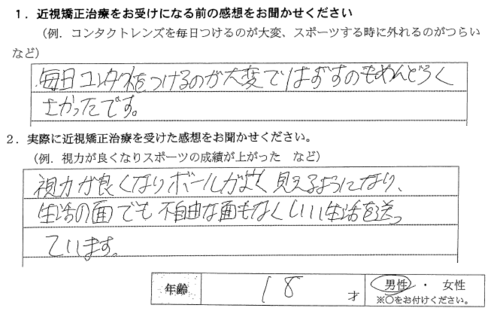 1．近視矯正治療をお受けになる前の感想をお聞かせください
（例．コンタクトレンズを毎日つけるのが大変、スポーツする時に外れるのがつらい
など）
毎日コンタクトをつけるのが大変ではずすのもめんどうく
さかったです。
2．実際に近視矯正治療を受けた感想をお聞かせください。
（例．視力が良くなりスポーツの成績が上がった　など）
視力が良くなりボールがよく見えるようになり、
生活の面でも不自由な面もなくいい生活を送っ
ています。
年齢　18　才　男性　・　女性
※〇をお付けください。